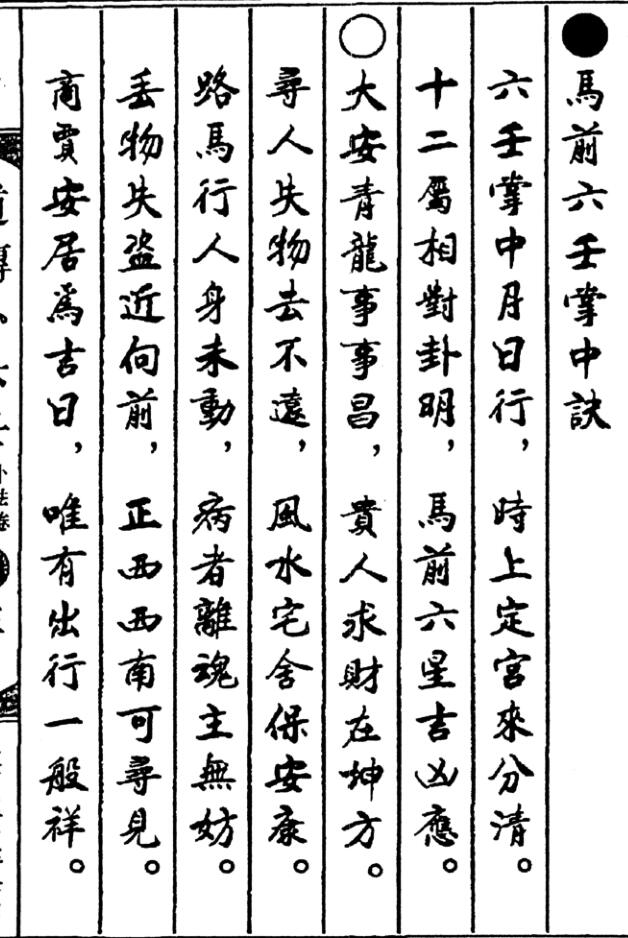 ●馬前六壬掌中訣
六壬掌中月日行，時上定宮來分清。
十二屬相對卦明，馬前六星吉凶應。
○大安青龍事事昌，貴人求財在坤方。
尋人失物去不遠，風水宅舍保安康。
路馬行人身未動，病者離魂主無妨。
丢物失盜近向前，正西西南可尋見。
商賈安居爲吉日，唯有出行一般祥。